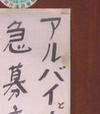 アルバイ
急募